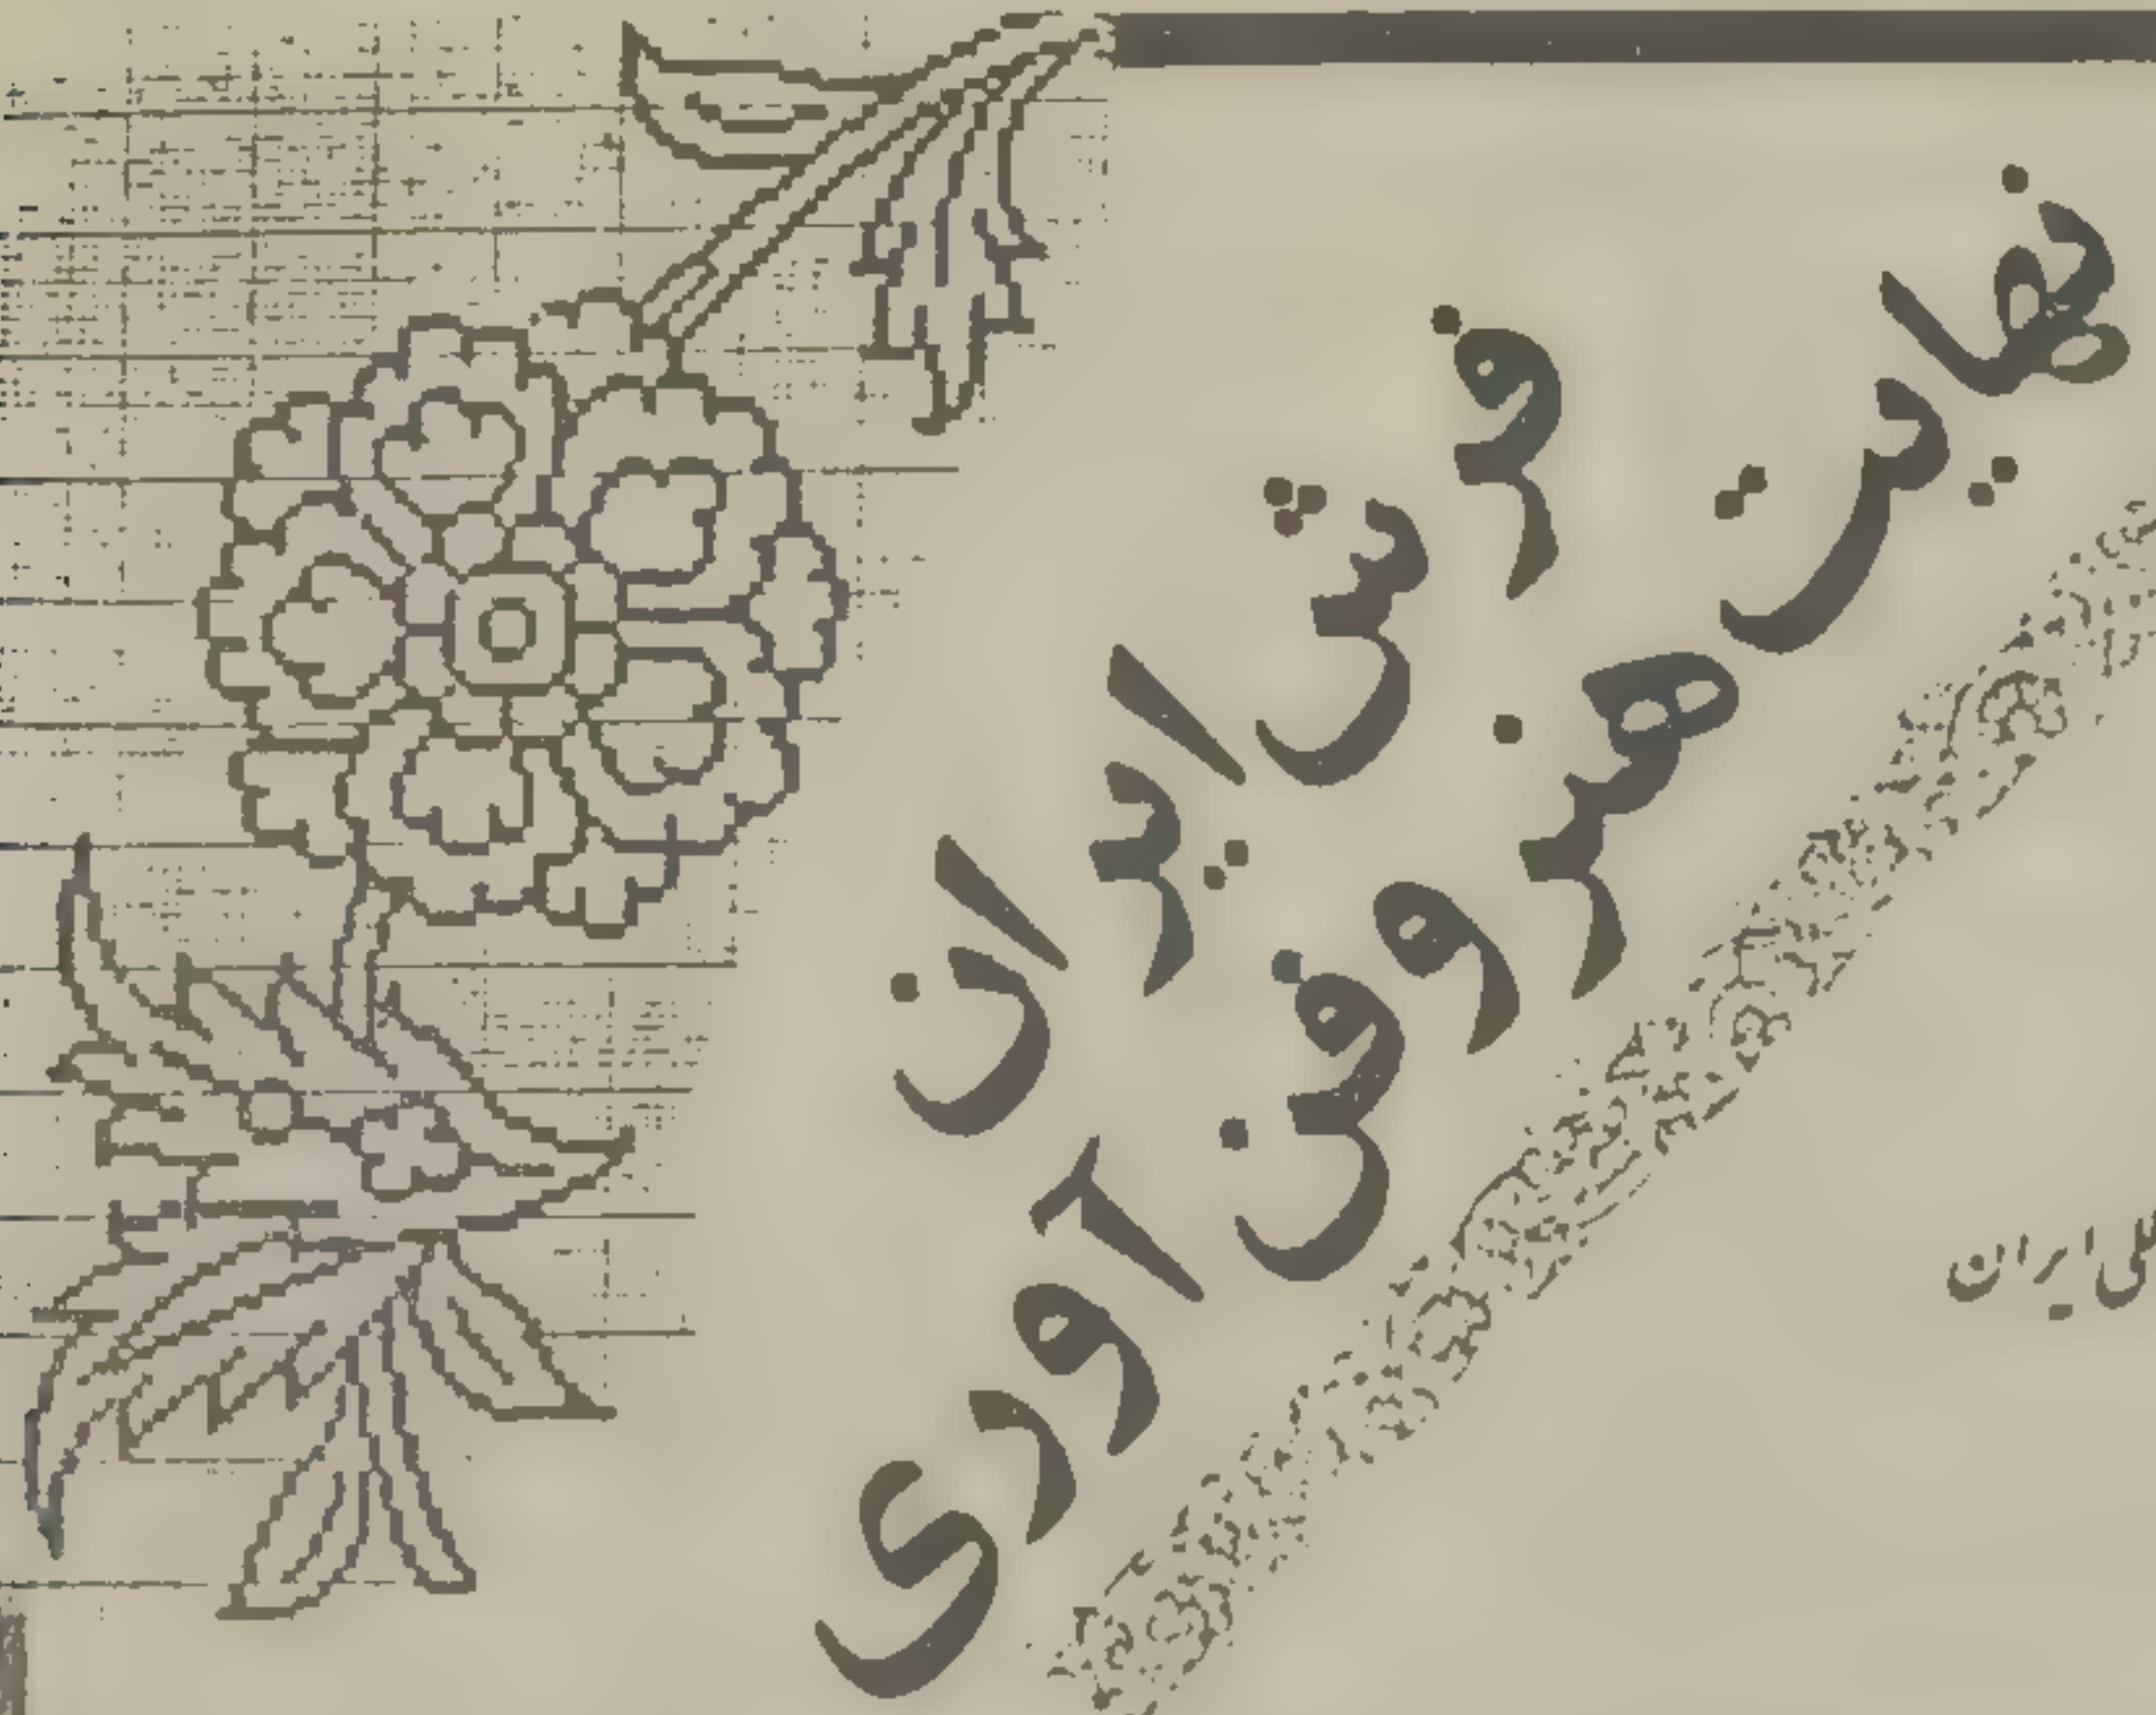 فرش ایران
نهایت هنر و فن آوری